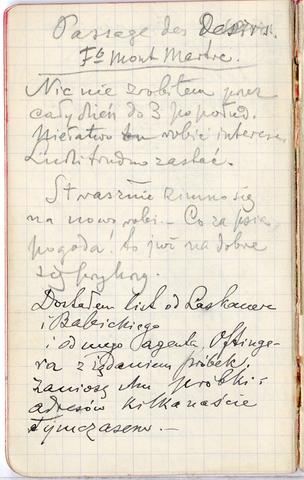 Passage des Desirs.
Fb Mont Martre.
Nic nie zrobiłem przez
cały dzień do 3 popołud.
Niełatwo tu robić interesa.
Ludzi trudno zastać.
Strasznie zimno się
na nowo robi. – Co za psia
pogoda! to już na dobre
się przykrzy.
Dostałem list od Laskauera
i Babickiego
i od mego agenta Oftinge-
ra z żądaniem próbek.
Zaniosę Mu próbki i
adresów kilkanaście
Tymczasem. –